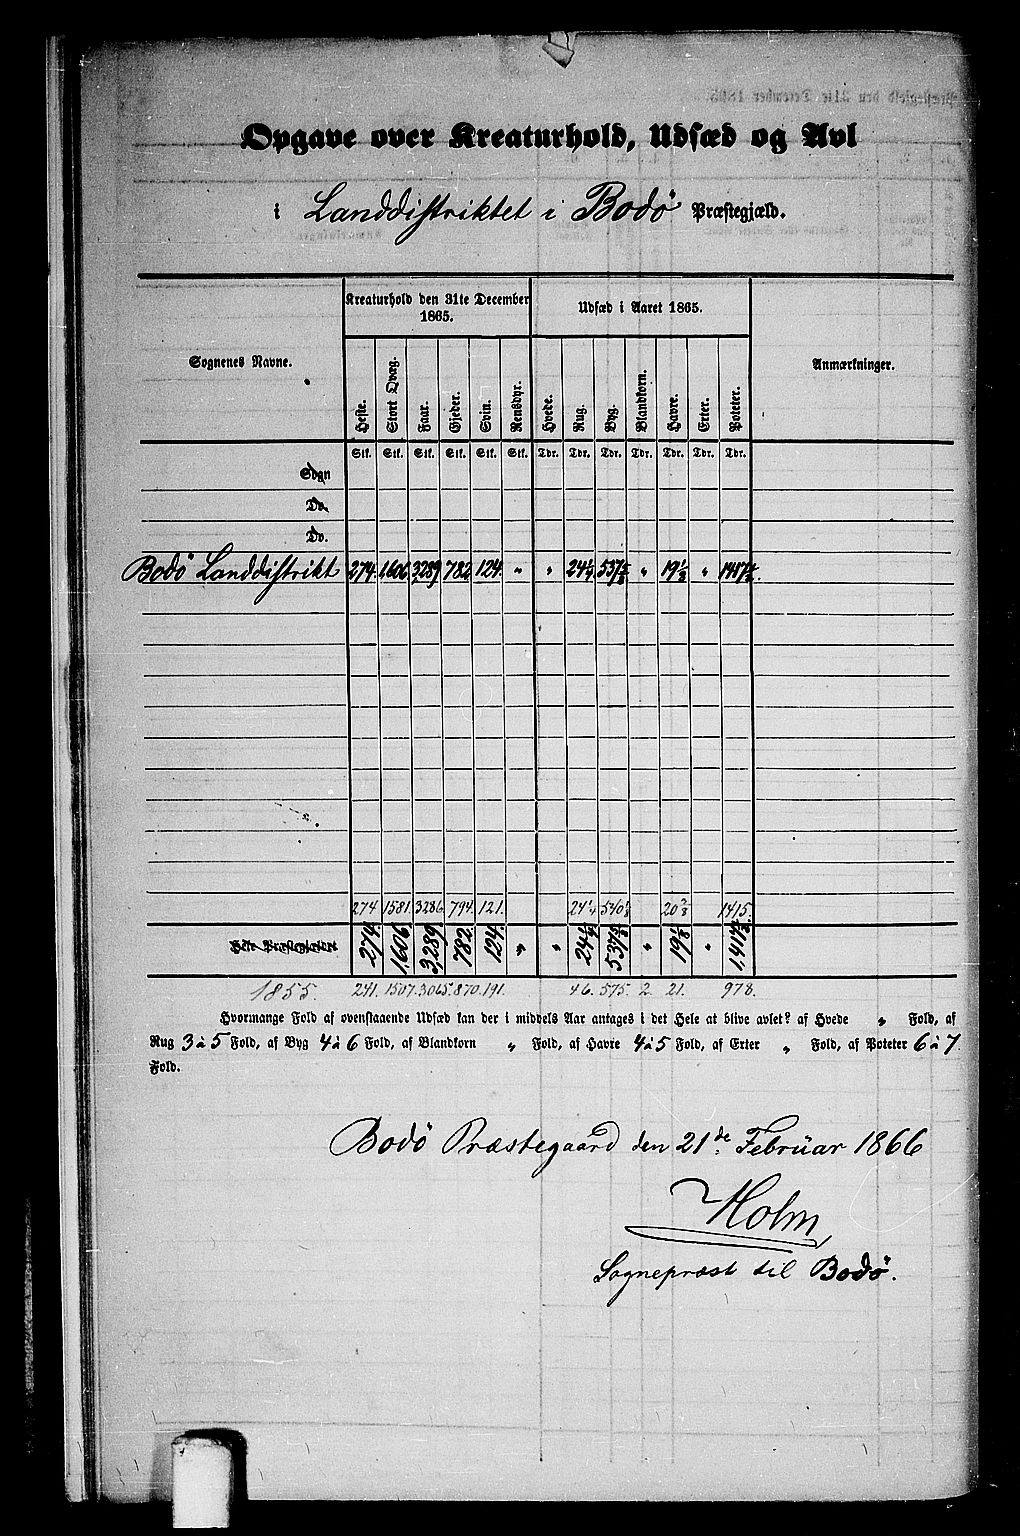 Opgave over Kreaturhold, Udsæd og Avl
i Landdistriktet i Bodø Præstegjæld.
Sognenes Navne.
Kreaturhold den 31te December 1865.
Udsæd i Aaret 1865.
Anmærkninger.
Heste. Stort Qvæg. Faar. Gjeder. Svin. Rensdyr. Hvede. Rug. Byg. Blandkorn. Havre. Erter. Poteter.
Stk. Stk. Stk. Stk. Stk. Stk. Tdr. Tdr. Tdr. Tdr. Tdr. Tdr. Tdr.
Sogn
Do.
Do.
Bodø Landdistrikt 274. 1606 3289 782 124. " " 24¼ 537⅝ " 19⅛ "
274 1581. 3286. 794. 121. 24¼ 540⅛ 20⅔ 1415.
Hele Præstegjældet 274. 1606. 3,289. 782. 124. " " 24¼ 537⅝ " 19⅛ "
1855. 241. 1507. 3065. 870. 191. 46. 575. 2. 21. 978.
Hvormange Fold af ovenstaaende Udsæd kan der i middels Aar antages i det Hele at blive avlet? af Hvede " Fold, af
Rug 3 à 5 Fold, af Byg 4 à 6 Fold, af Blandkorn " Fold, af Havre 4 à 5 Fold, af Erter " Fold, af Poteter 6 à 7
Fold.
Bodø Præstegaard den 21de Februar 1866
Holm
Sognepræst til Bodø.